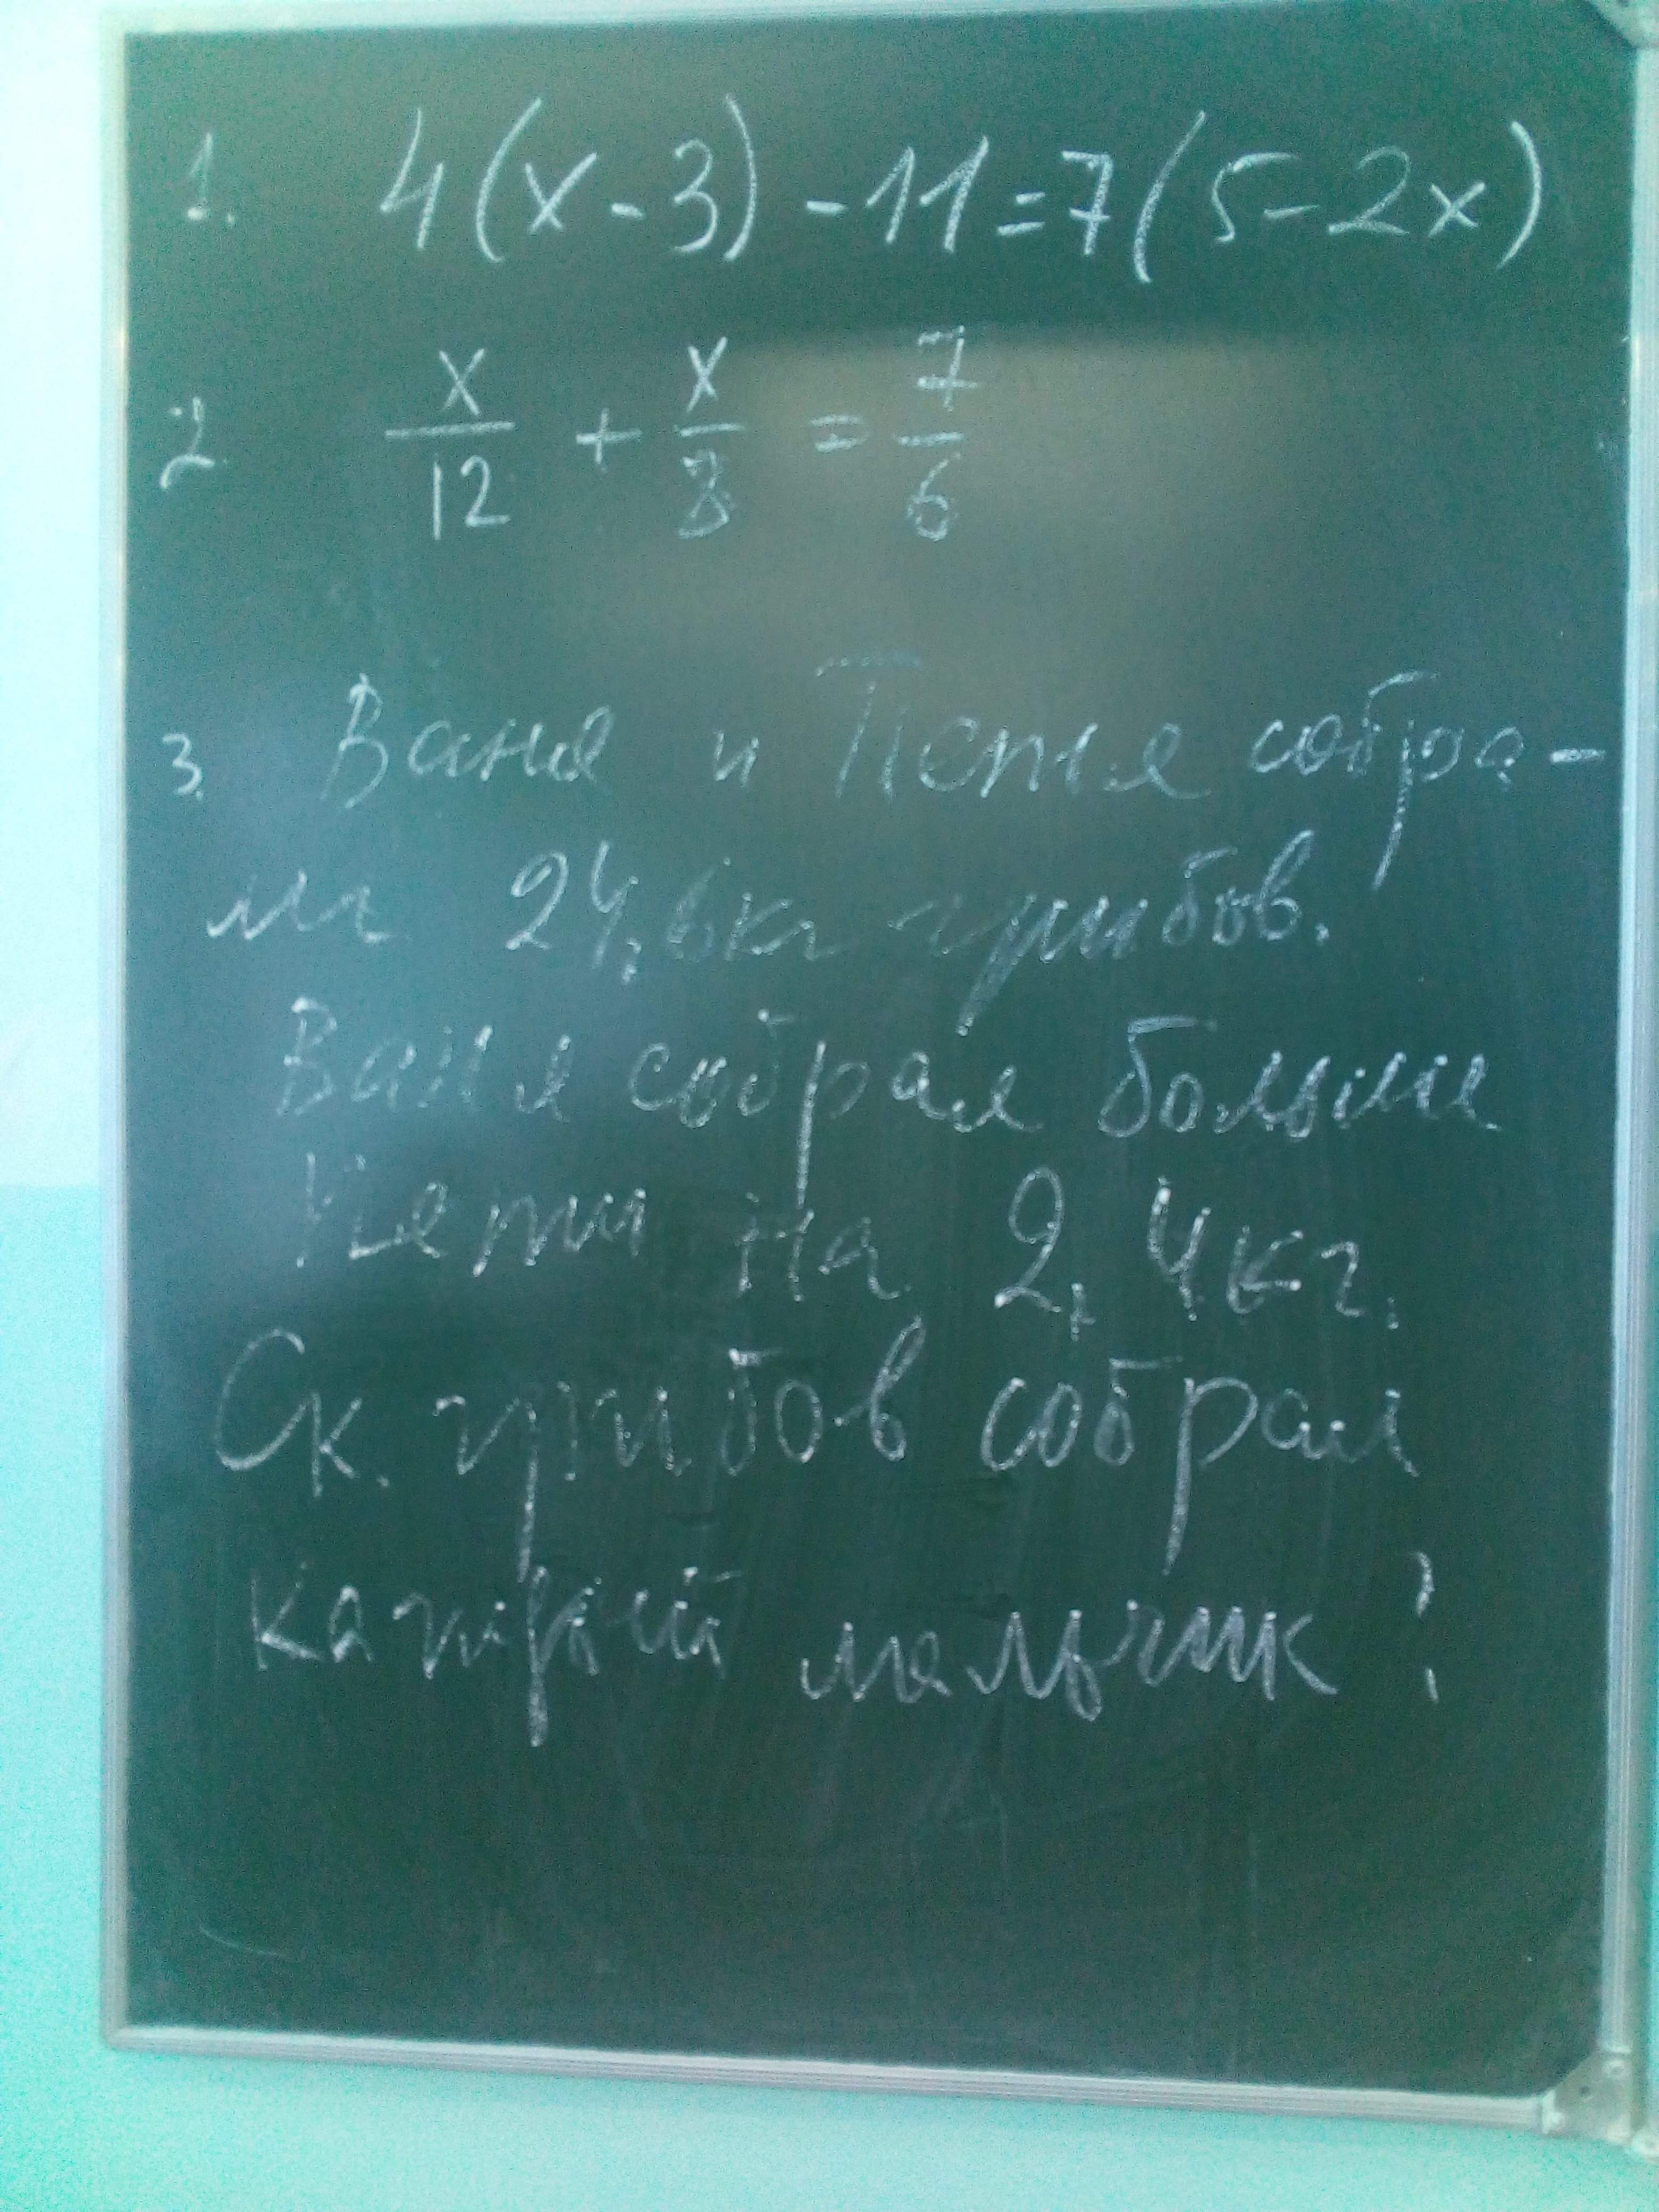 1. 4(x-3)-11=7(5-2x)
2. x/12 + x/8 = 7/6
3. Ваня и Петя собра-
ли 24,6кг грибов.
Ваня собрал больше
Пети на 2,4кг.
Ск. грибов собрал
каждый мальчик?